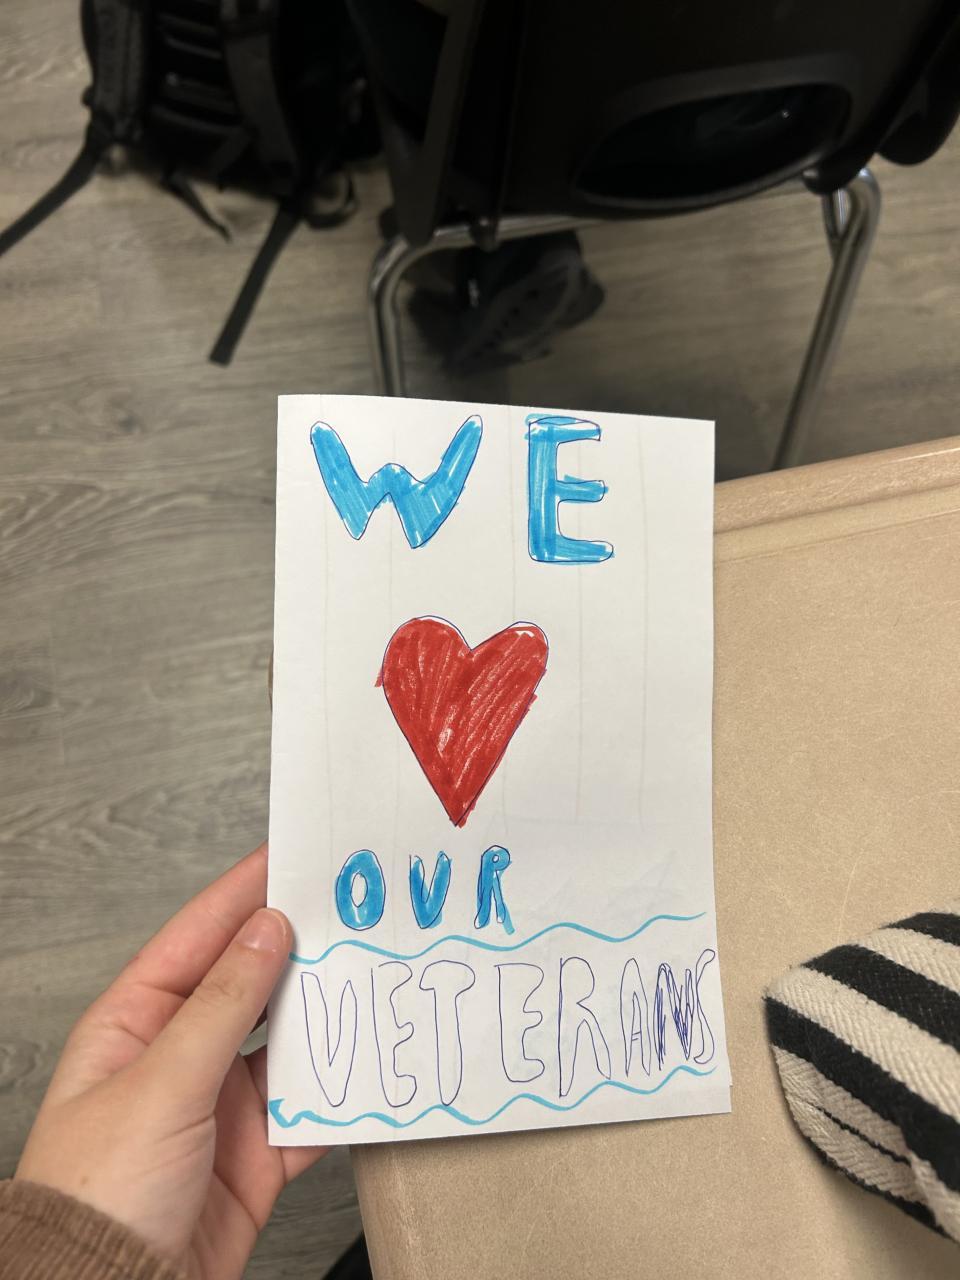 WE
❤
OUR
VETERANS